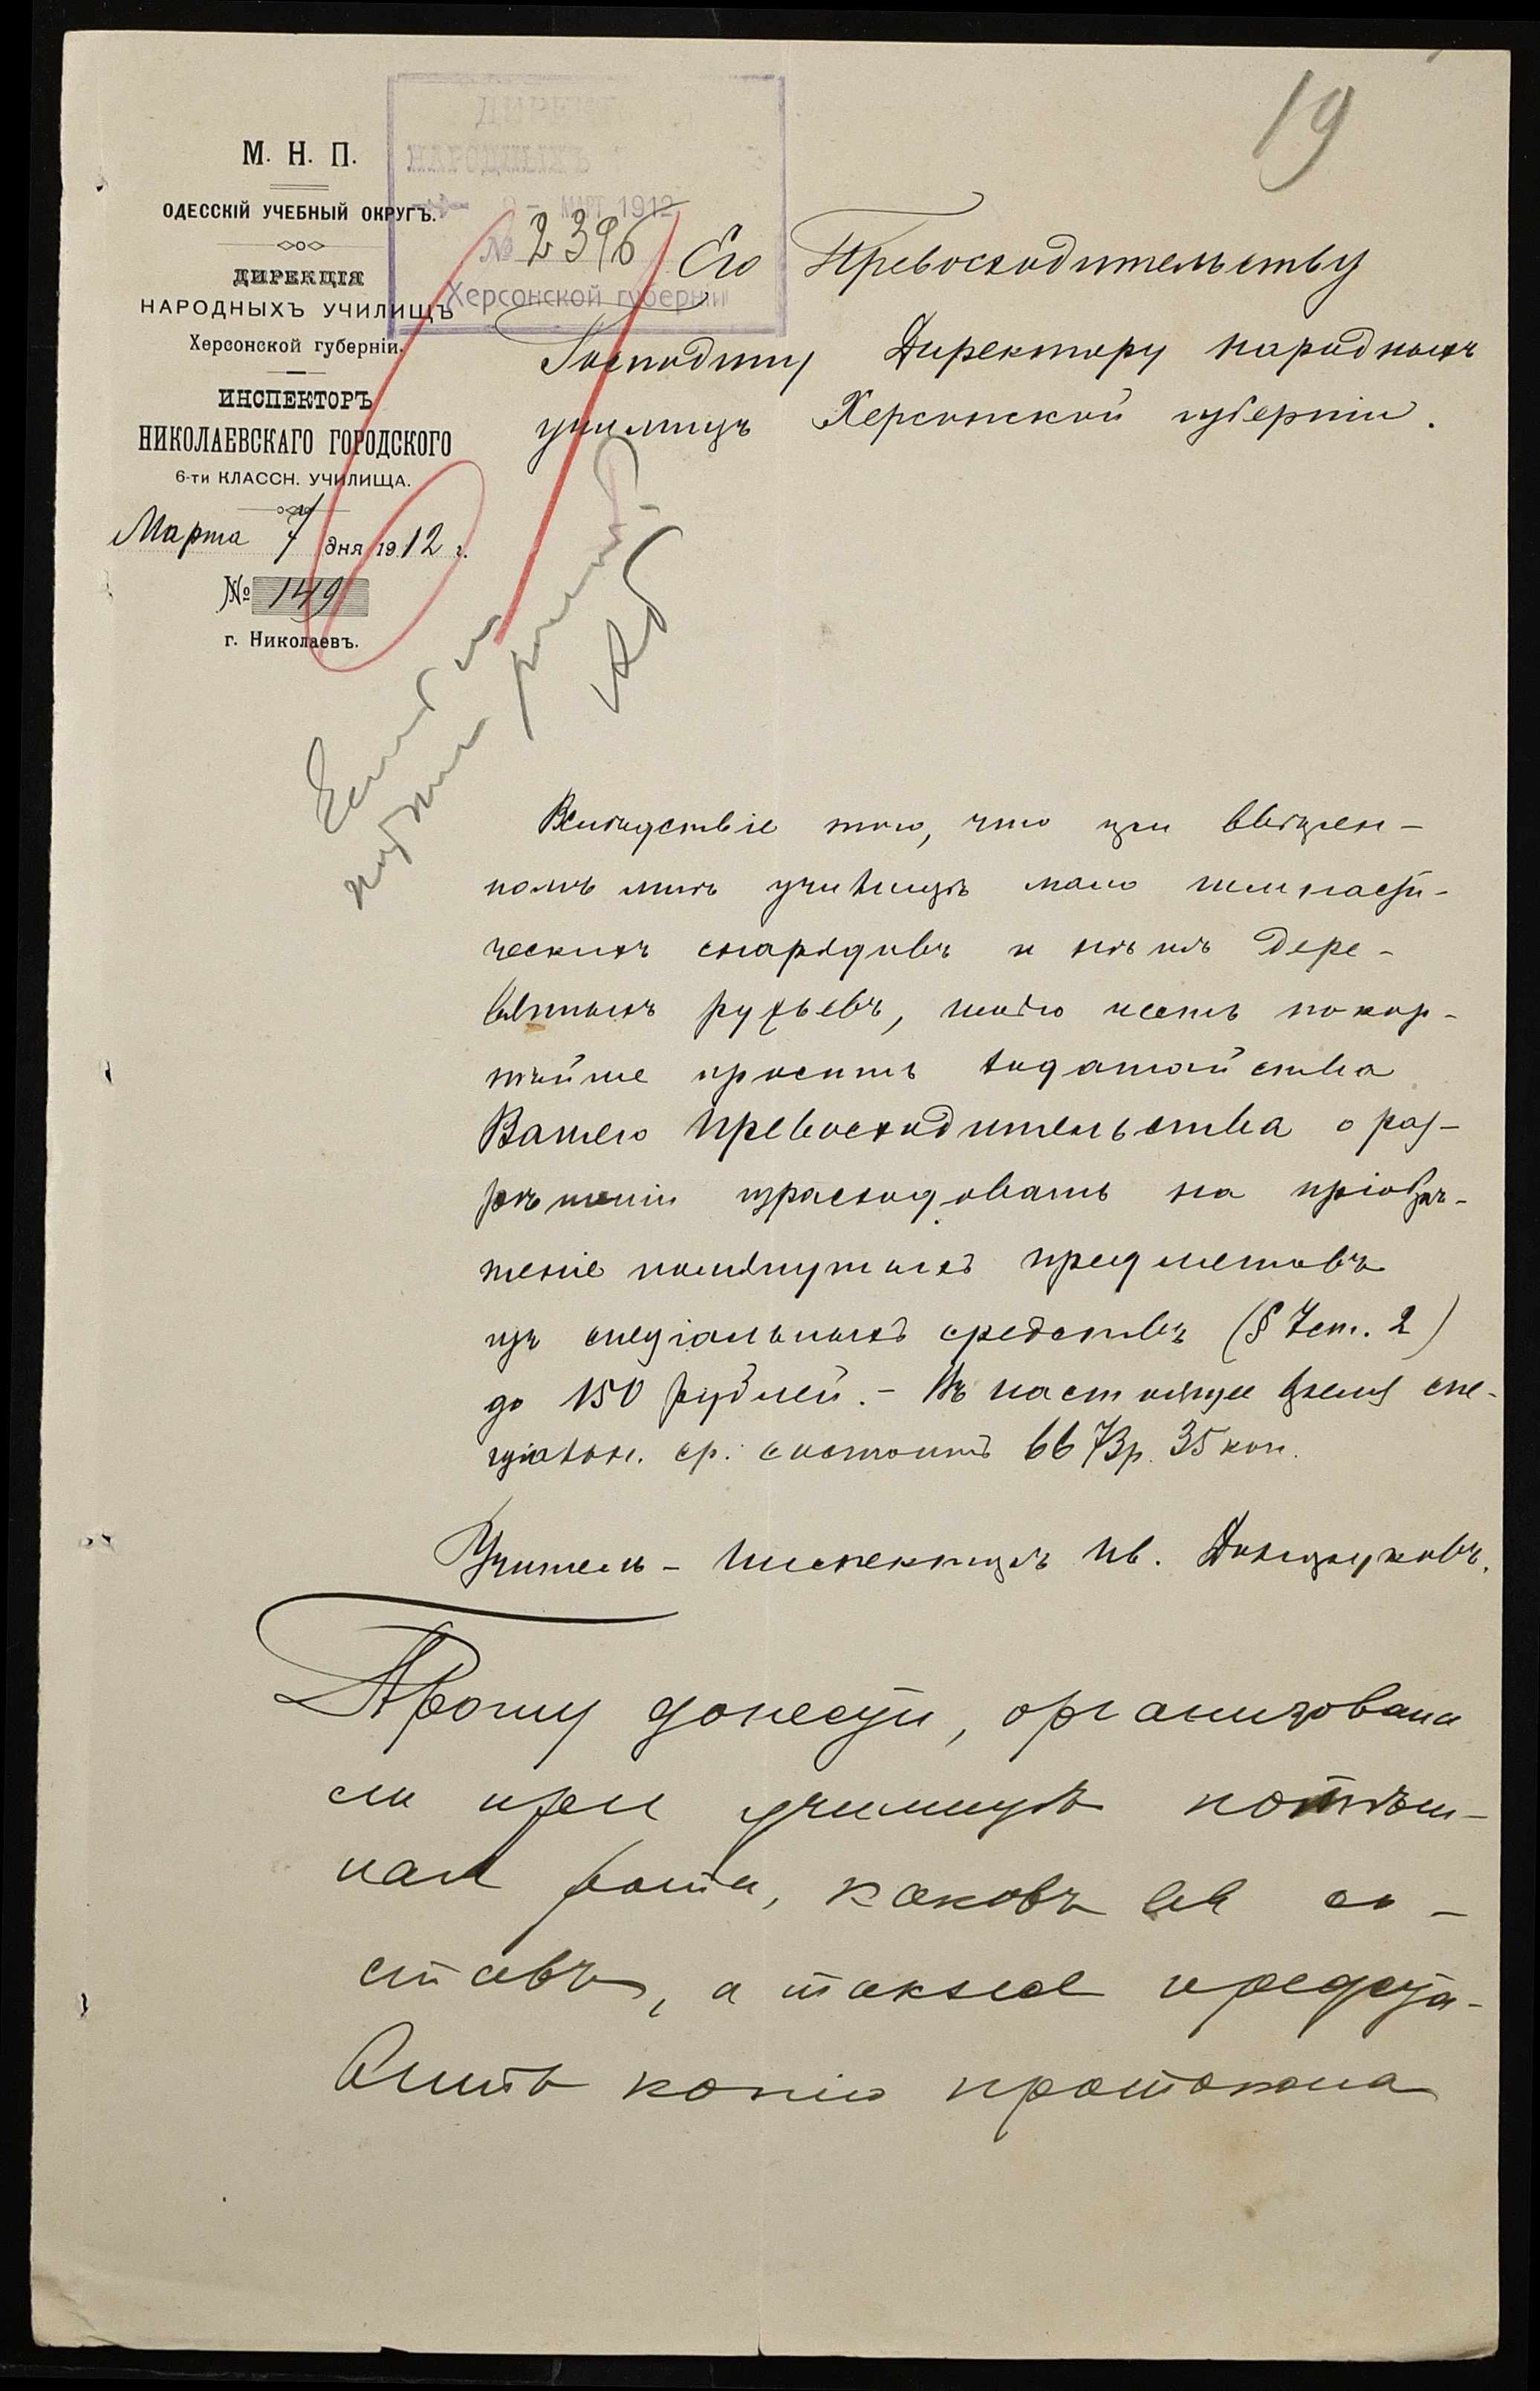 19
М. Н. П.
ОДЕССКІЙ УЧЕБНЫЙ ОКРУГЪ.
ДИРЕКЦІЯ
НАРОДНЫХЪ УЧИЛИЩЪ
Херсонской губерніи.
ИНСПЕКТОРЪ
НИКОЛАЕВСКАГО ГОРОДСКОГО
6-ти КЛАССН. УЧИЛИЩА.
Марта 7 дня 1912 г.
№ 149
г. Николаевъ.
ДИРЕК
НАРОДНЫХЪ
9 - МАРТ 1912
№ 2396
Херсонской губерніи
Его Превосходительству
Господину Директору народныхъ
училищъ Херсонской губерніи.
Если
Вслѣдствіе того, что при ввѣрен-
номъ мнѣ училищѣ мало гимнасти-
ческихъ снарядовъ и нѣтъ дере-
вянныхъ ружьевъ, имѣю честь покор-
нѣйше просить ходатайства
Вашего Превосходительства о раз-
рѣшеніи израсходовать на пріобрѣ-
теніе помянутыхъ предметовъ
изъ спеціальныхъ средствъ (§ 7 ст. 2)
до 150 рублей. - Въ настоящее время спе-
ціальн. ср. состоитъ 6673р. 35 коп.
Учитель - Инспекторъ Ив.
Прошу донести, организована
ли при училищѣ потѣш-
ная рота, каковъ ея со-
ставъ, а также предста-
вить копію протокола